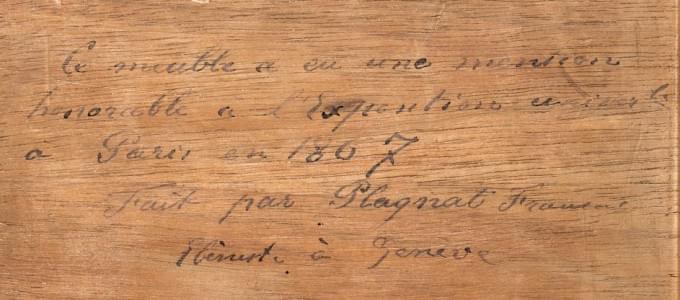 Ce meuble a eu une mention
honorable a l'Exposition univers
a Paris en 1867
Fait par Plagnat Francois
Ebeniste à Geneve